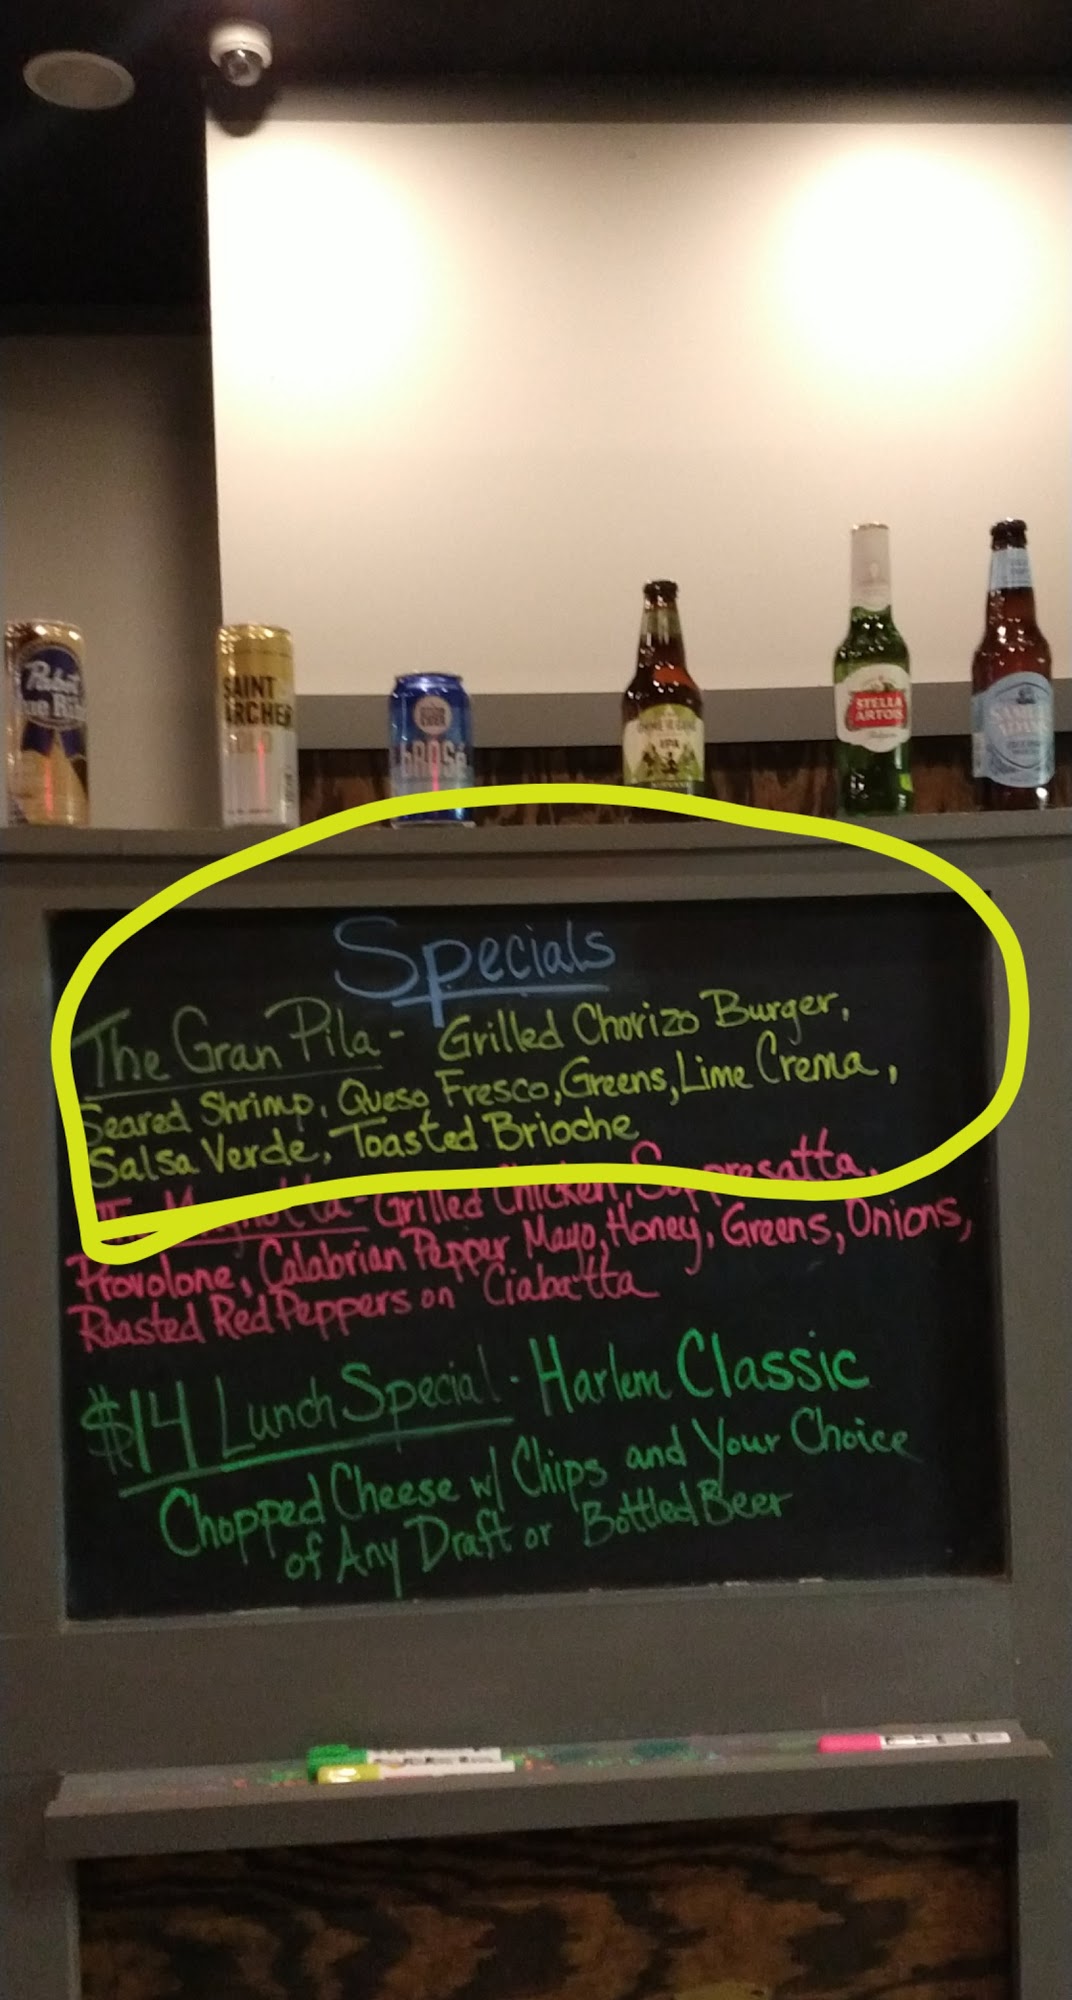 Pabst
SAINT
ARCHER
GOLD
bROSé
IPA
STELLA
ARTOIS
Specials
The Gran Pila - Grilled Chorizo Burger,
Seared Shrimp, Queso Fresco, Greens, Lime Crema,
Salsa Verde, Toasted Brioche
Grilled Chicken, Soppresatta,
Provolone, Calabrian Pepper Mayo, Honey, Greens, Onions,
Roasted Red Peppers on Ciabatta
$14 Lunch Special - Harlem Classic
Chopped Cheese w/ Chips and Your Choice
of Any Draft or Bottled Beer